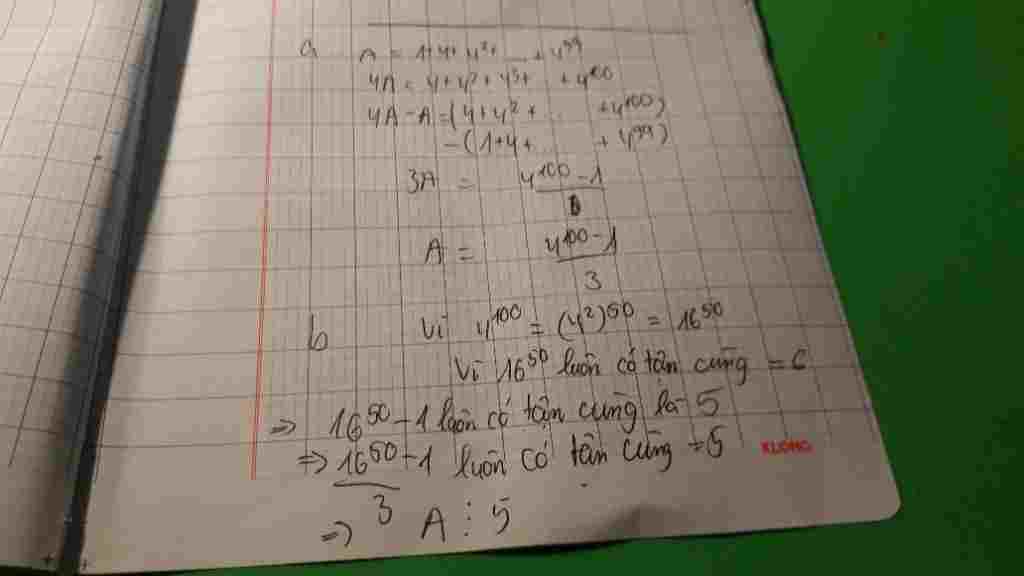 a A = 1+4+4²+ ... + 4⁹⁹
4A = 4+4²+4³+ ... + 4¹⁰⁰
4A - A = (4+4²+ ... +4¹⁰⁰)
-(1+4+ ... + 4⁹⁹)
3A = 4¹⁰⁰-1
A = (4¹⁰⁰-1)/3
b Vì 4¹⁰⁰ = (4²)⁵⁰ = 16⁵⁰
Vì 16⁵⁰ luôn có tận cùng = 6
=> 16⁵⁰-1 luôn có tận cùng là 5
=> (16⁵⁰-1)/3 luôn có tận cùng = 5
=> A ⋮ 5
KLONG